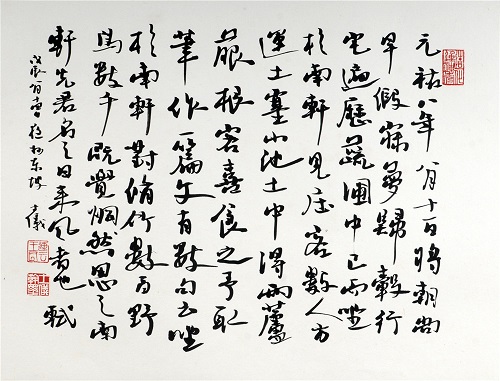 元祐八年八月十一日將朝尚
早假寐夢歸縠行
宅遍歷蔬圃中已而坐
於南軒見庄客數人方
運土塞小池土中得兩蘆
菔根客喜食之予取
筆作一篇文有數句云坐
於南軒對脩竹數百野
鳥數千既覺惘然思之南
軒先君名之曰來風者也 軾
東坡 士儀